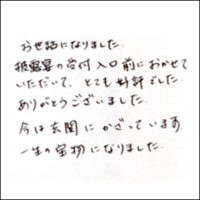 お世話になりました。
披露宴の受付入口前におかせて
いただいて、とても好評でした。
ありがとうございました。
今は玄関にかざっています。
一生の宝物になりました。